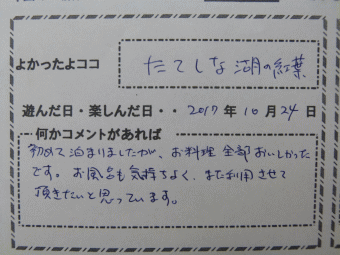 よかったよココ たてしな湖の紅葉
遊んだ日・楽しんだ日・・ 2017年10月24日
何かコメントがあれば
初めて泊まりましたが、お料理全部おいしかった
です。お風呂も気持ちよく、また利用させて
頂きたいと思っています。